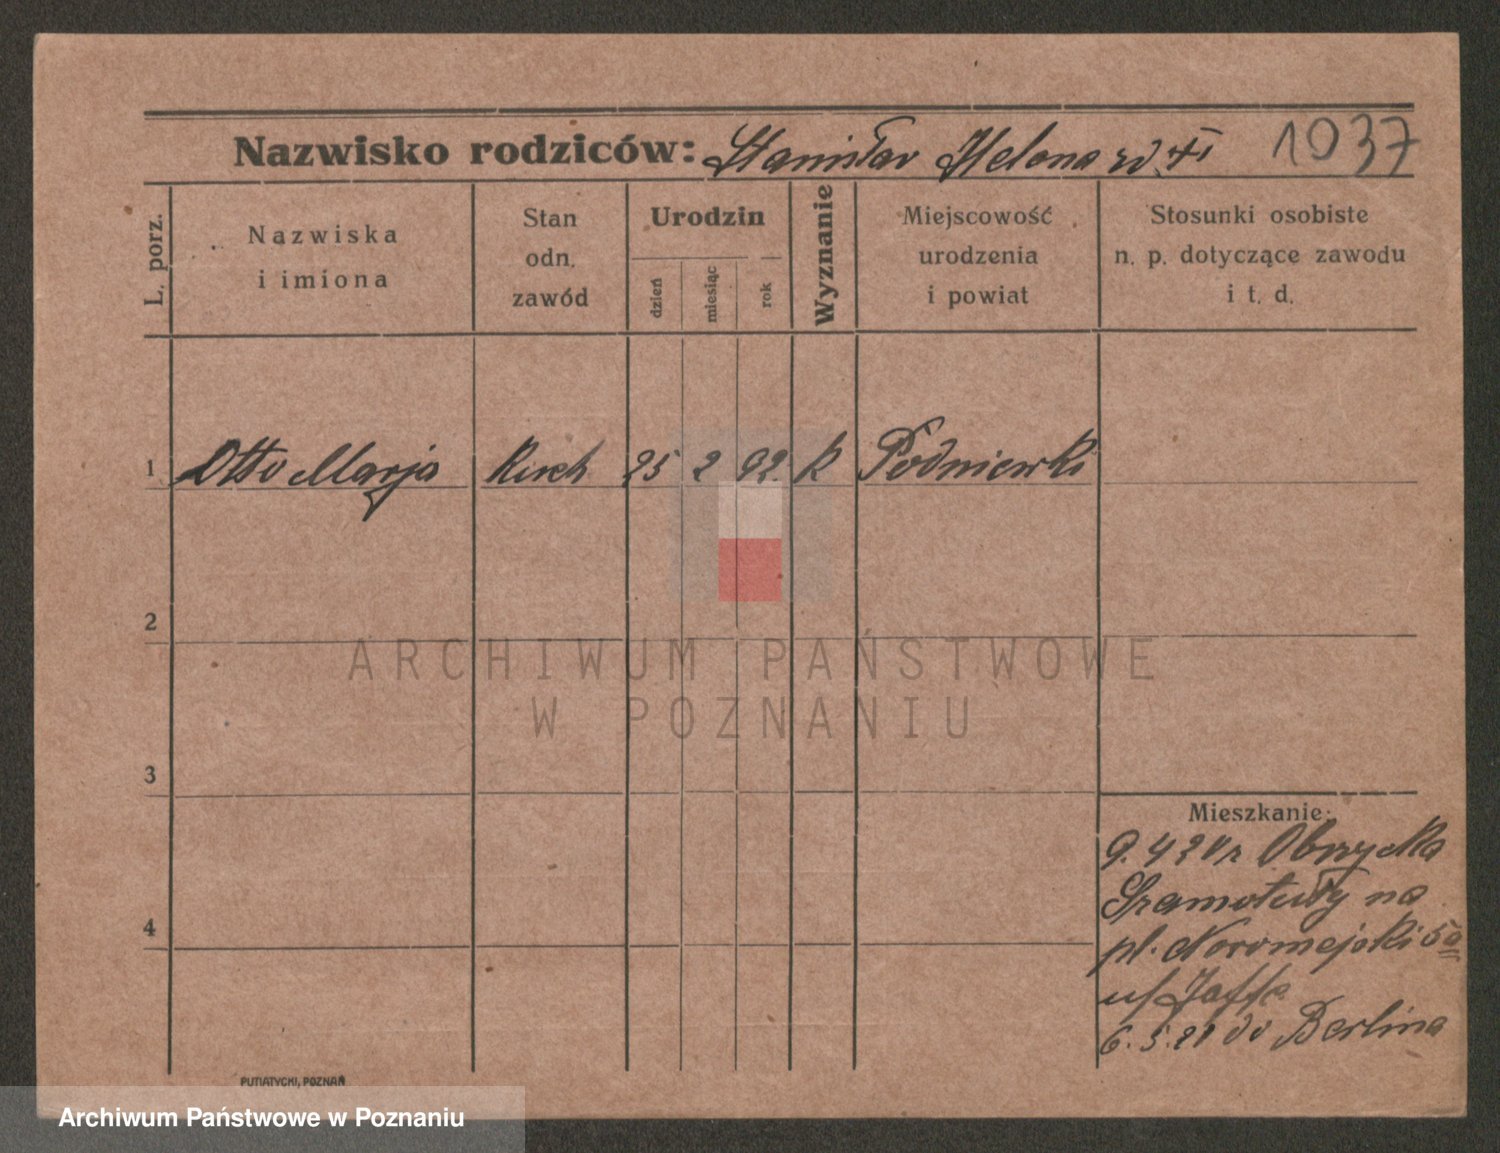 Nazwisko rodziców: Stanisław Helena 1037
L. porz.
Nazwiska
i imiona
Stan
odn.
zawód
Urodzin
dzień
miesiąc
rok
Wyznanie
Miejscowość
urodzenia
i powiat
Stosunki osobiste
n. p. dotyczące zawodu
i t. d.
1 Otto Marja 25 2 92. k Podniewki
2
ARCHIWUM PAŃSTWOWE
W POZNANIU
3
Mieszkanie:
9. 4 21 Obrzycka
Szamotuły na
4
pl. Nowomiejski 5a
u/ Jaffe
6. 5. 21 do Berlina
PUTIATYCKI, POZNAŃ
Archiwum Państwowe w Poznaniu